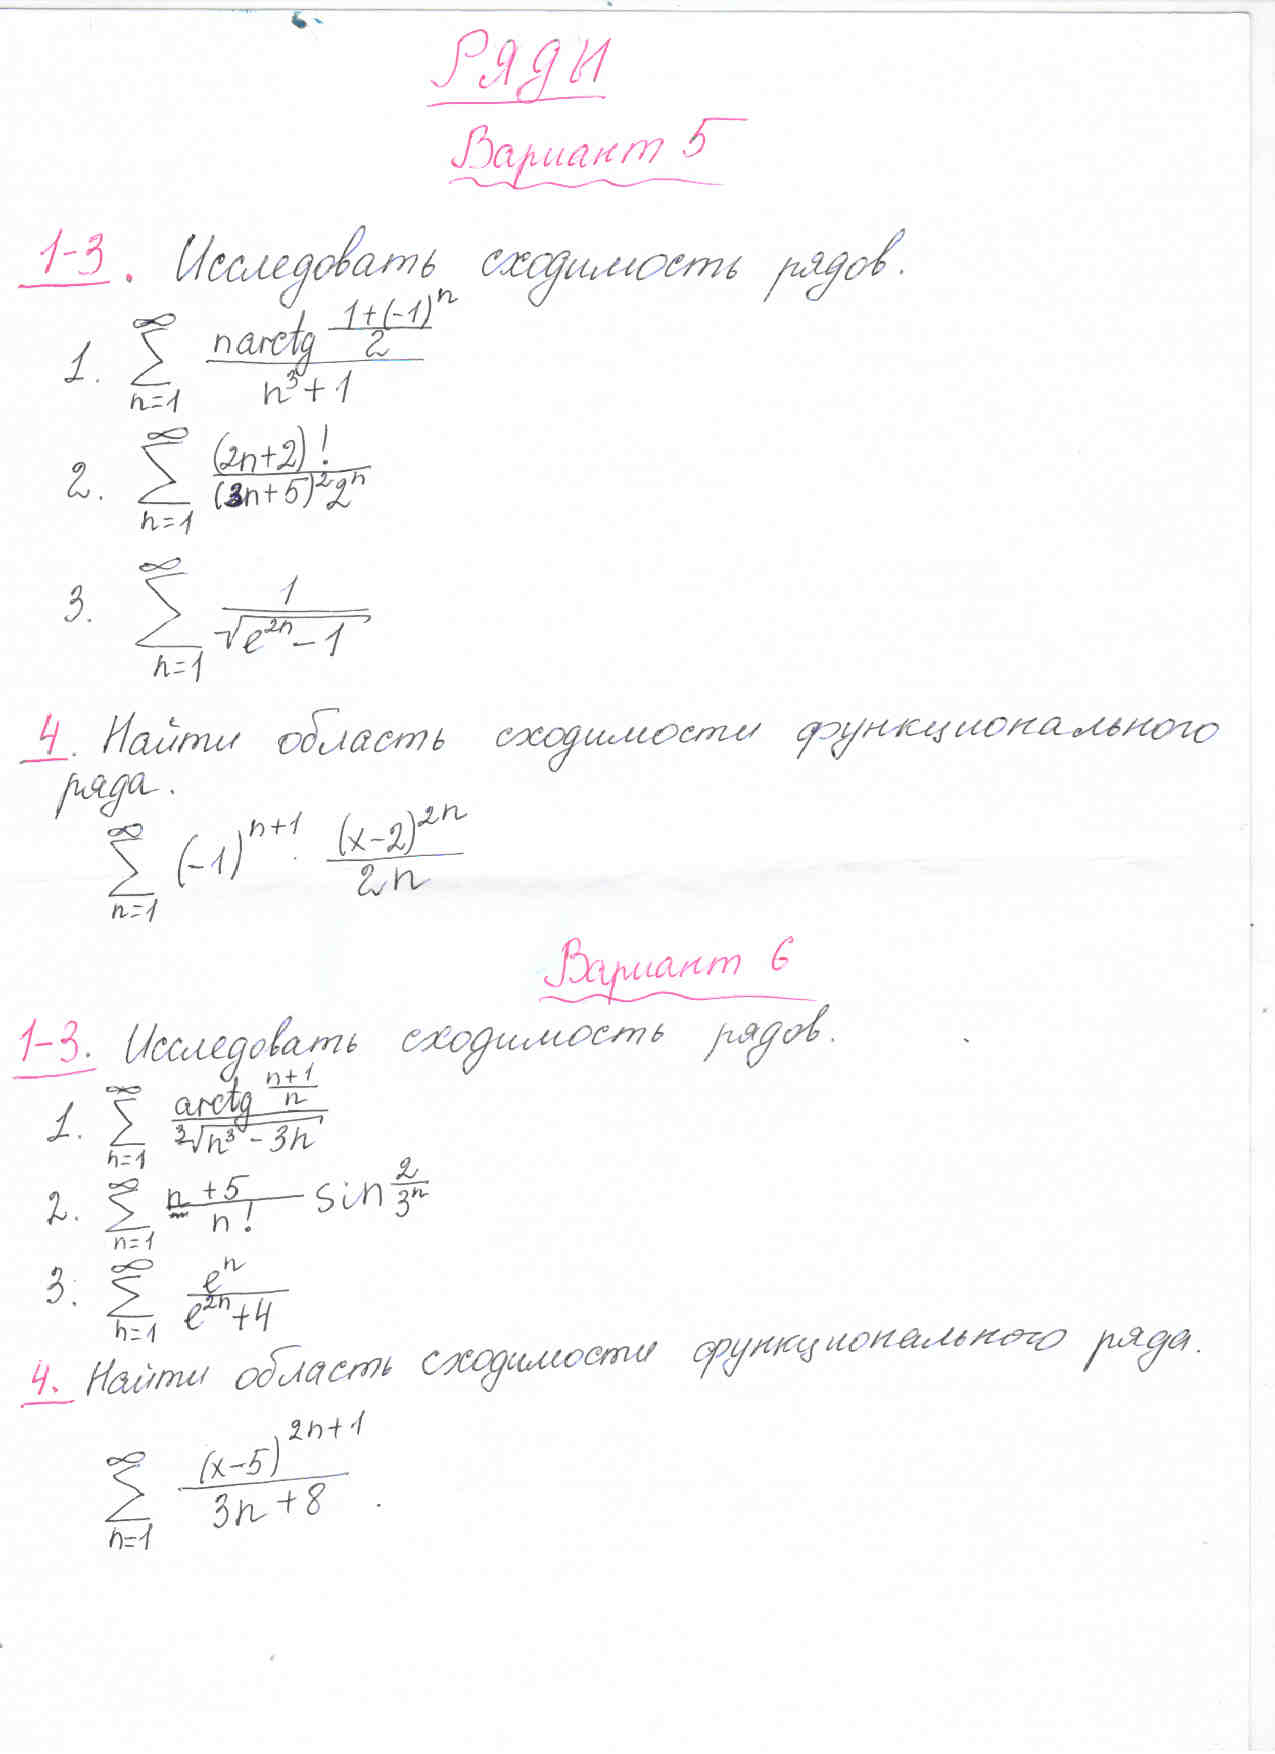 РЯДЫ
Вариант 5
1-3. Исследовать сходимость рядов.
1. ∑_{n=1}^{∞} \frac{n arctg \frac{1+(-1)^n}{2}}{n^3+1}
2. ∑_{n=1}^{∞} \frac{(2n+2)!}{(3n+5)^2 2^n}
3. ∑_{n=1}^{∞} \frac{1}{\sqrt{e^{2n}-1}}
4. Найти область сходимости функционального
ряда.
∑_{n=1}^{∞} (-1)^{n+1} · \frac{(x-2)^{2n}}{2n}
Вариант 6
1-3. Исследовать сходимость рядов.
1. ∑_{n=1}^{∞} \frac{arctg \frac{n+1}{n}}{\sqrt[3]{n^3-3n}}
2. ∑_{n=1}^{∞} \frac{n+5}{n!} sin \frac{2}{3^n}
3. ∑_{n=1}^{∞} \frac{e^n}{e^{2n}+4}
4. Найти область сходимости функционального ряда.
∑_{n=1}^{∞} \frac{(x-5)^{2n+1}}{3n+8}.